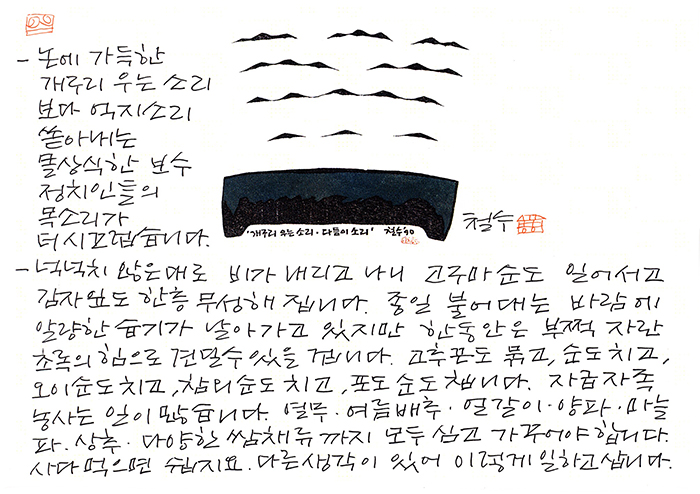 - 논에 가득한
개구리 우는 소리
보다 억지소리
쏟아내는
몰상식한 보수
정치인들의
목소리가
더 시끄럽습니다.
'개구리 우는 소리·다듬이 소리' 철수 90
철수
- 넉넉치 않은대로 비가 내리고 나니 고구마순도 일어서고
감자밭도 한층 무성해 집니다. 종일 불어대는 바람에
알량한 습기가 날아가고 있지만 한동안은 부쩍 자란
초록의 힘으로 견딜수 있을 겁니다. 고추끈도 묶고, 순도 치고,
오이순도 치고, 참외순도 치고, 포도순도 칩니다. 자급자족
농사는 일이 많습니다. 열무·여름배추·얼갈이·양파·마늘
파·상추·다양한 쌈채류까지 모두 심고 가꾸어야 합니다.
사다 먹으면 쉽지요. 다른 생각이 있어 이렇게 일하고 삽니다.